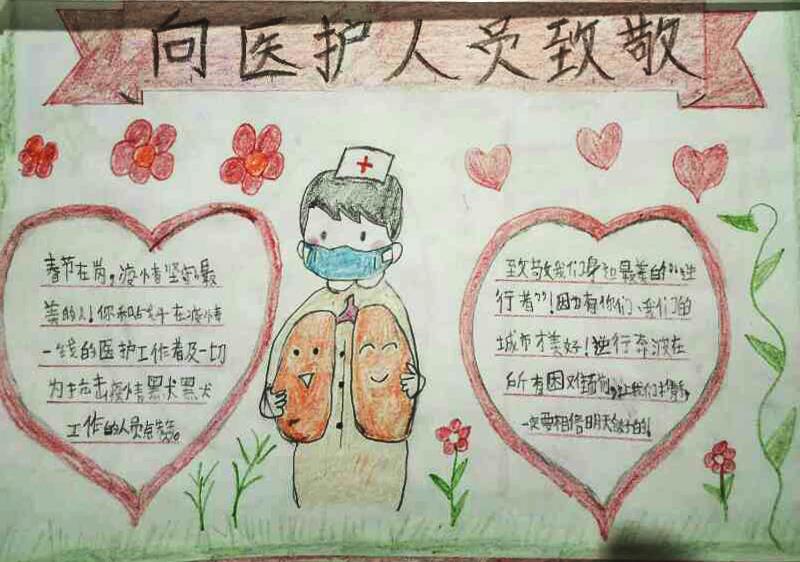 向医护人员致敬
春节在岗,疫情坚守,最
美的人!你和站在疫情
一线的医护工作者及一切
为抗击疫情默默
工作的人员点赞。
致敬我们身边最美的“逆
行者”!因为有你们、我们的
城市才美好!逆行奔波在
所有困难面前,让我们
一定要相信明天会好的!